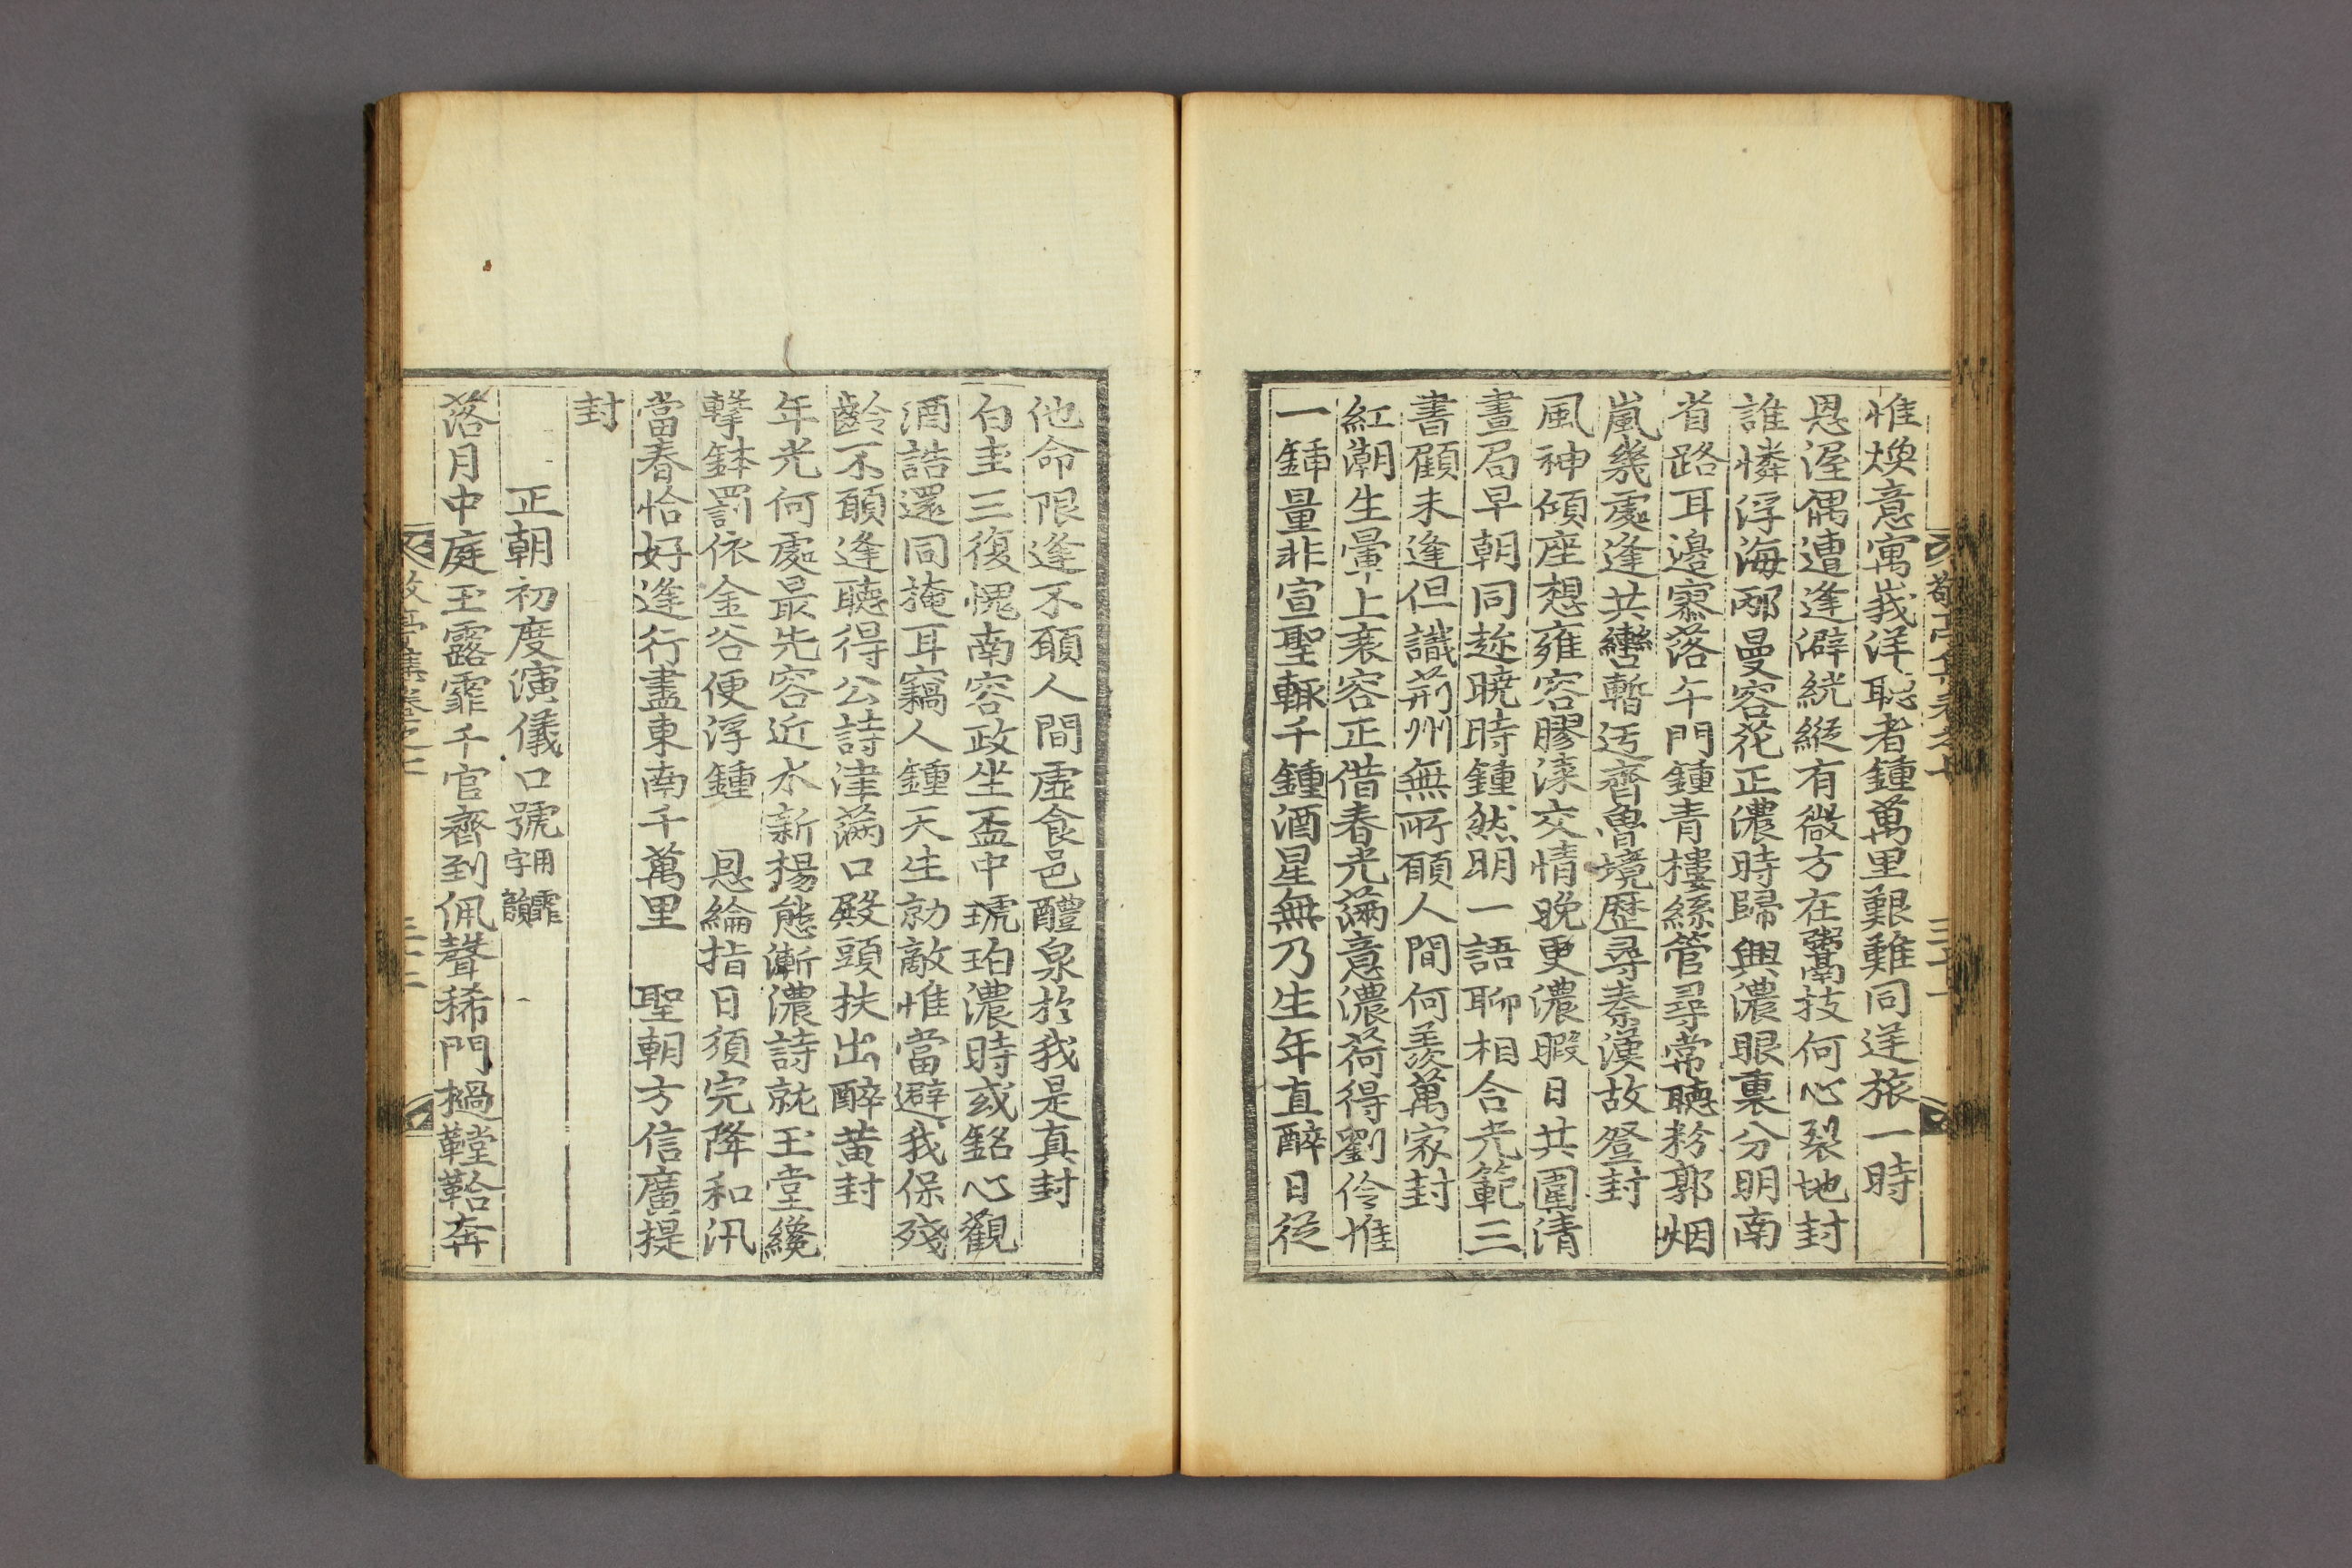 敬亭集卷之七 三十一
惟煥意寓峩洋聽者鍾萬里艱難同逆旅一時
恩渥偶遭逢澼絖縱有微方在鬻技何心裂地封
誰憐浮海邴曼容花正濃時歸興濃眼裏分明南
省路耳邊寥落午門鍾靑樓絲管尋常聽粉郭烟
嵐幾處逢共轡暫迃齊魯境歷尋秦漢故登封
風神傾座想雍容膠漆交情晩更濃暇日共圍淸
晝局早朝同趂曉時鍾然明一語聊相合堯範三
書顧未逢但識荊州無所願人間何羨萬家封
紅潮生暈上衰容正借春光滿意濃荷得劉伶惟
一鍤量非宣聖輒千鍾酒星無乃生年直醉日從
他命限逢不願人間虛食邑醴泉於我是眞封
白圭三復愧南容政坐盃中琥珀濃時或銘心觀
酒誥還同掩耳竊人鍾天生勍敵惟當避我保殘
齡不願逢聽得公詩津滿口殿頭扶出醉黃封
年光何處最先容近水新楊態漸濃詩就玉堂纔
擊鉢罰依金谷便浮鍾 恩綸指日須完降和汛
當春恰好逢行盡東南千萬里 聖朝方信廣提
封
正朝初度演儀口號用霏字韻
落月中庭玉露霏千官齊到佩聲稀門撾鞺鞳奔
敬亭集卷之七 三十二